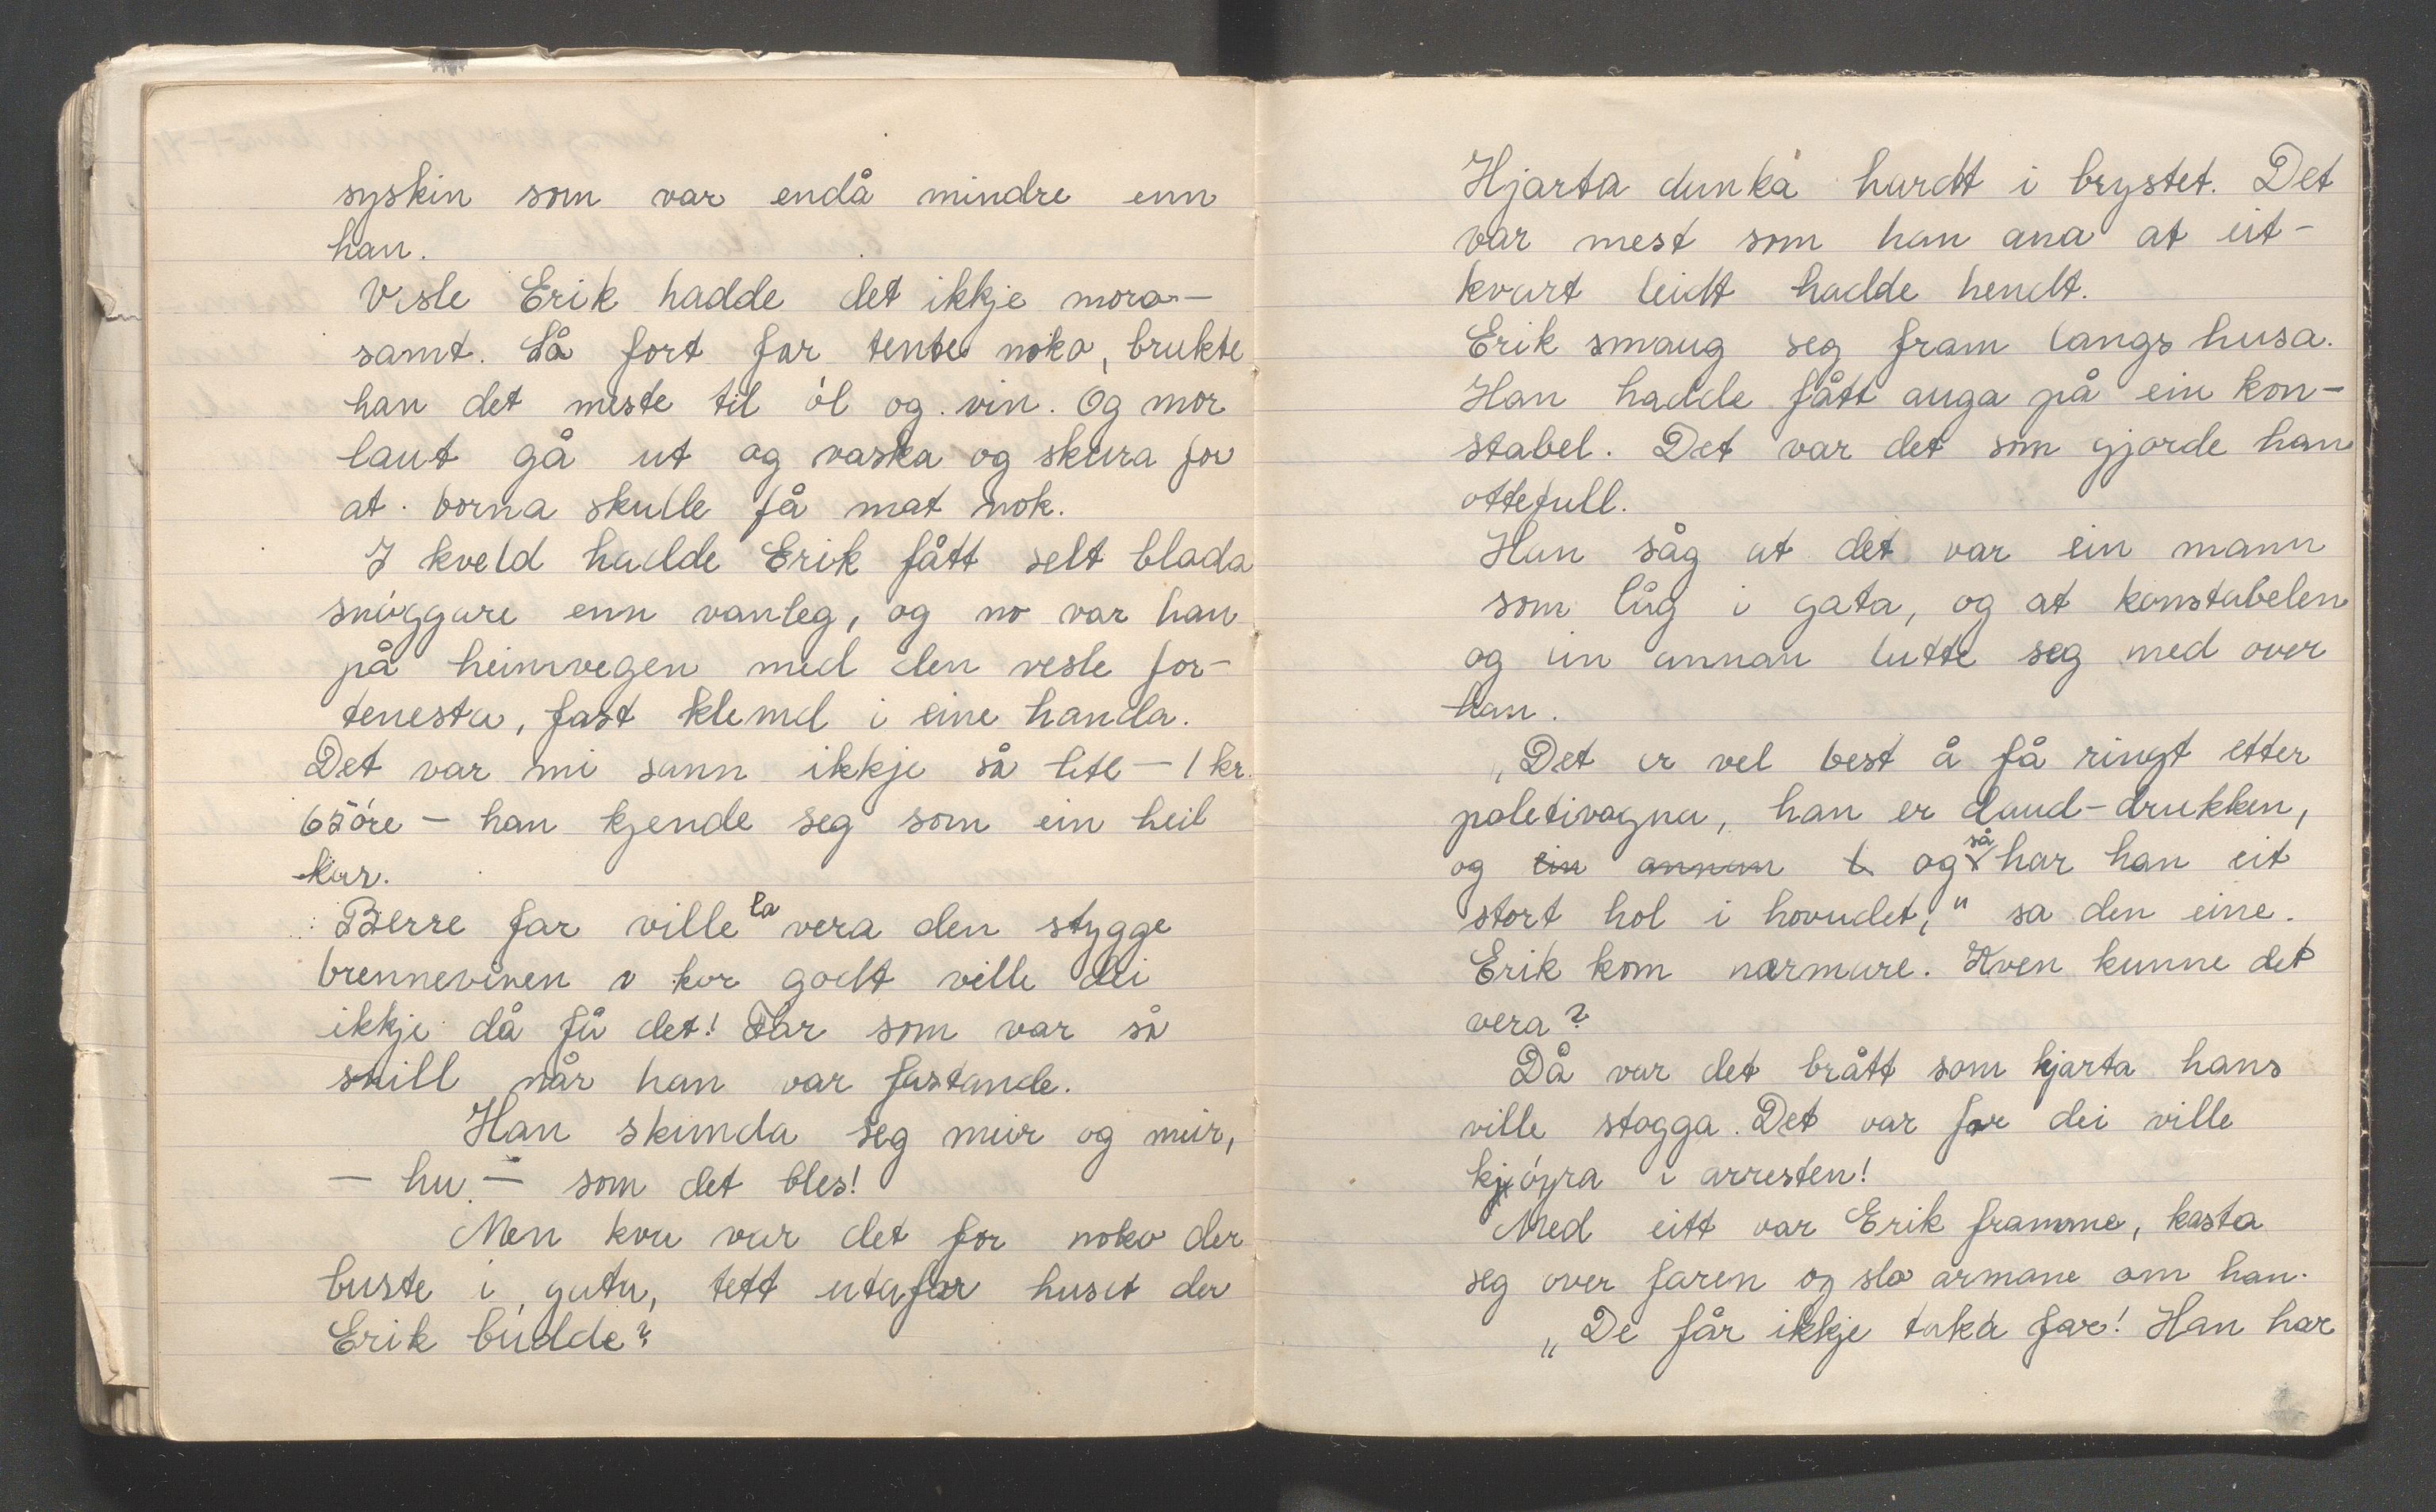 syskin som var endå mindre enn
han.
Vesle Erik hadde det ikkje moro-
samt. Så fort far tente noko, brukte
han det meste til öl og vin. Og mor
laut gå ut og vaska og skura for
at borna skulle få mat nok.
I kveld hadde Erik fått selt blada
snöggare enn vanleg, og no var han
på heimvegen med den vesle for-
tenesta, fast klemd i eine handa.
Det var mi sann ikkje så lite - 1 kr.
65 öre - han kjende seg som ein heil
kar.
Berre far ville la vera den stygge
brennevinen kor godt ville dei
ikkje då få det! Far som var så
snill når han var fastande.
Han skunda seg meir og meir,
- hu - som det bles!
Men kva var det for noko der
burte i gata, tett utafor huset der
Erik budde?
Hjarta dunka hardt i brystet. Det
var mest som han ana at eit-
kvart leidt hadde hendt.
Erik smaug seg fram langs husa.
Han hadde fått auga på ein kon-
stabel. Det var det som gjorde han
ottefull.
Han såg at det var ein mann
som låg i gata, og at konstabelen
og ein annan lutte seg med over
han.
„Det er vel best å få ringt etter
poletivogna, han er daud-drukken,
og ein annan l og så har han eit
stort hol i hovudet," sa den eine.
Erik kom nærmare. Kven kunne det
vera?
Då var det brått som hjarta hans
ville stogga. Det var far dei ville
kjöyra i arresten!
Med eitt var Erik framme, kasta
seg over faren og slo armane om han.
„De får ikkje taka far! Han har